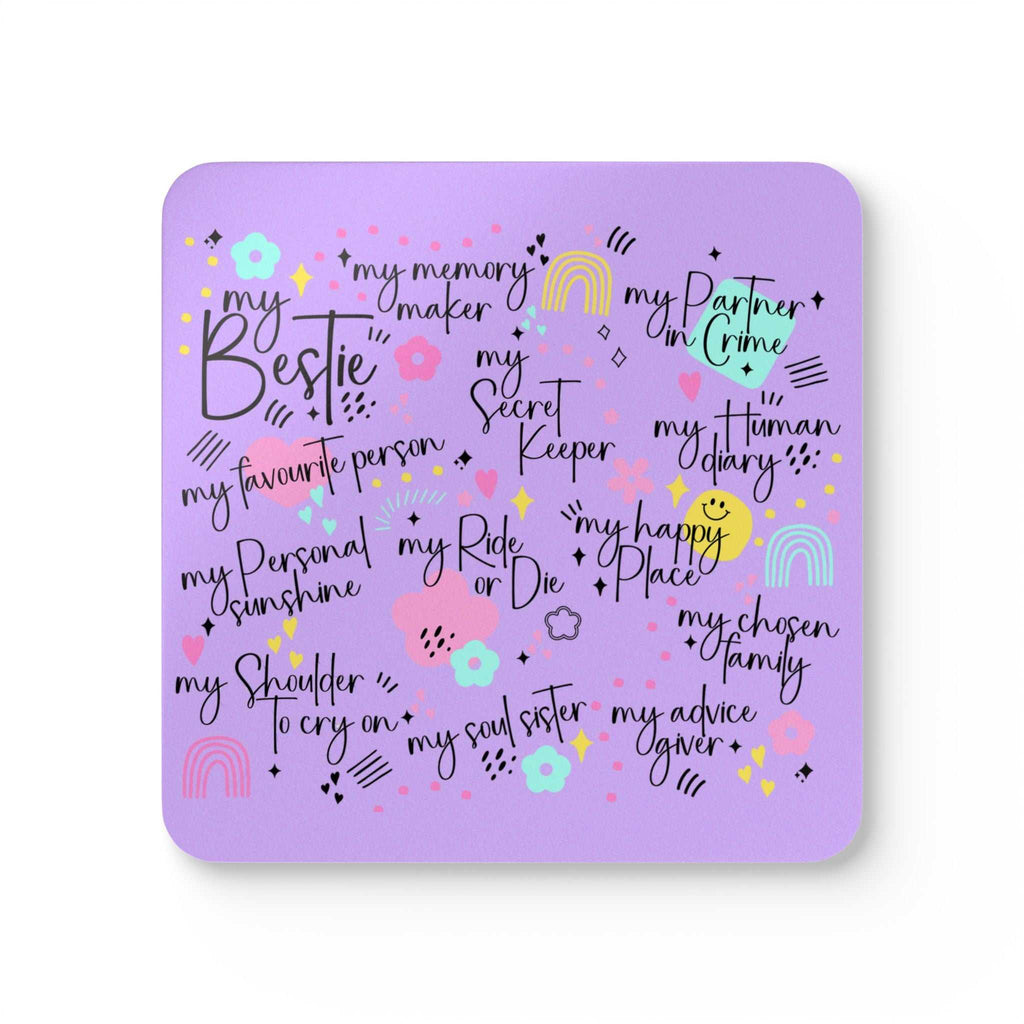 my
Bestie
my memory
maker
my Partner
in Crime
my
Secret
Keeper
my Human
diary
my favourite person
my Personal
sunshine
my Ride
or Die
my happy
Place
my chosen
family
my Shoulder
To cry on
my soul sister
my advice
giver